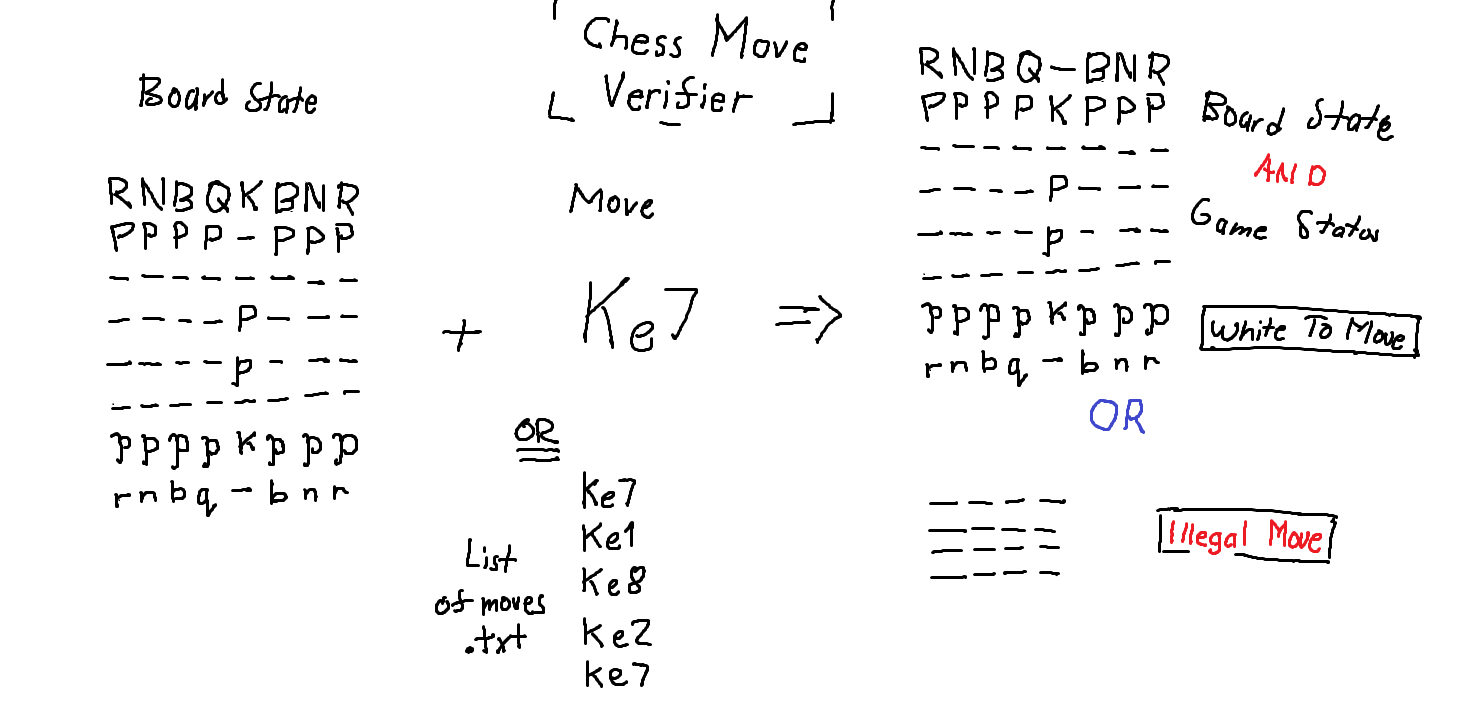 Chess Move
Verifier
Board State
RNBQKBNR
PPPP-PPP
--------
----P---
----p---
--------
ppppkppp
rnbq-bnr
+
Move
Ke7
OR
List
of moves
.txt
Ke7
Ke1
Ke8
Ke2
Ke7
=>
RNBQ-BNR
PPPPKPPP
--------
----P---
----p---
--------
ppppkppp
rnbq-bnr
Board State
AND
Game Status
White To Move
OR
----
----
----
----
Illegal Move